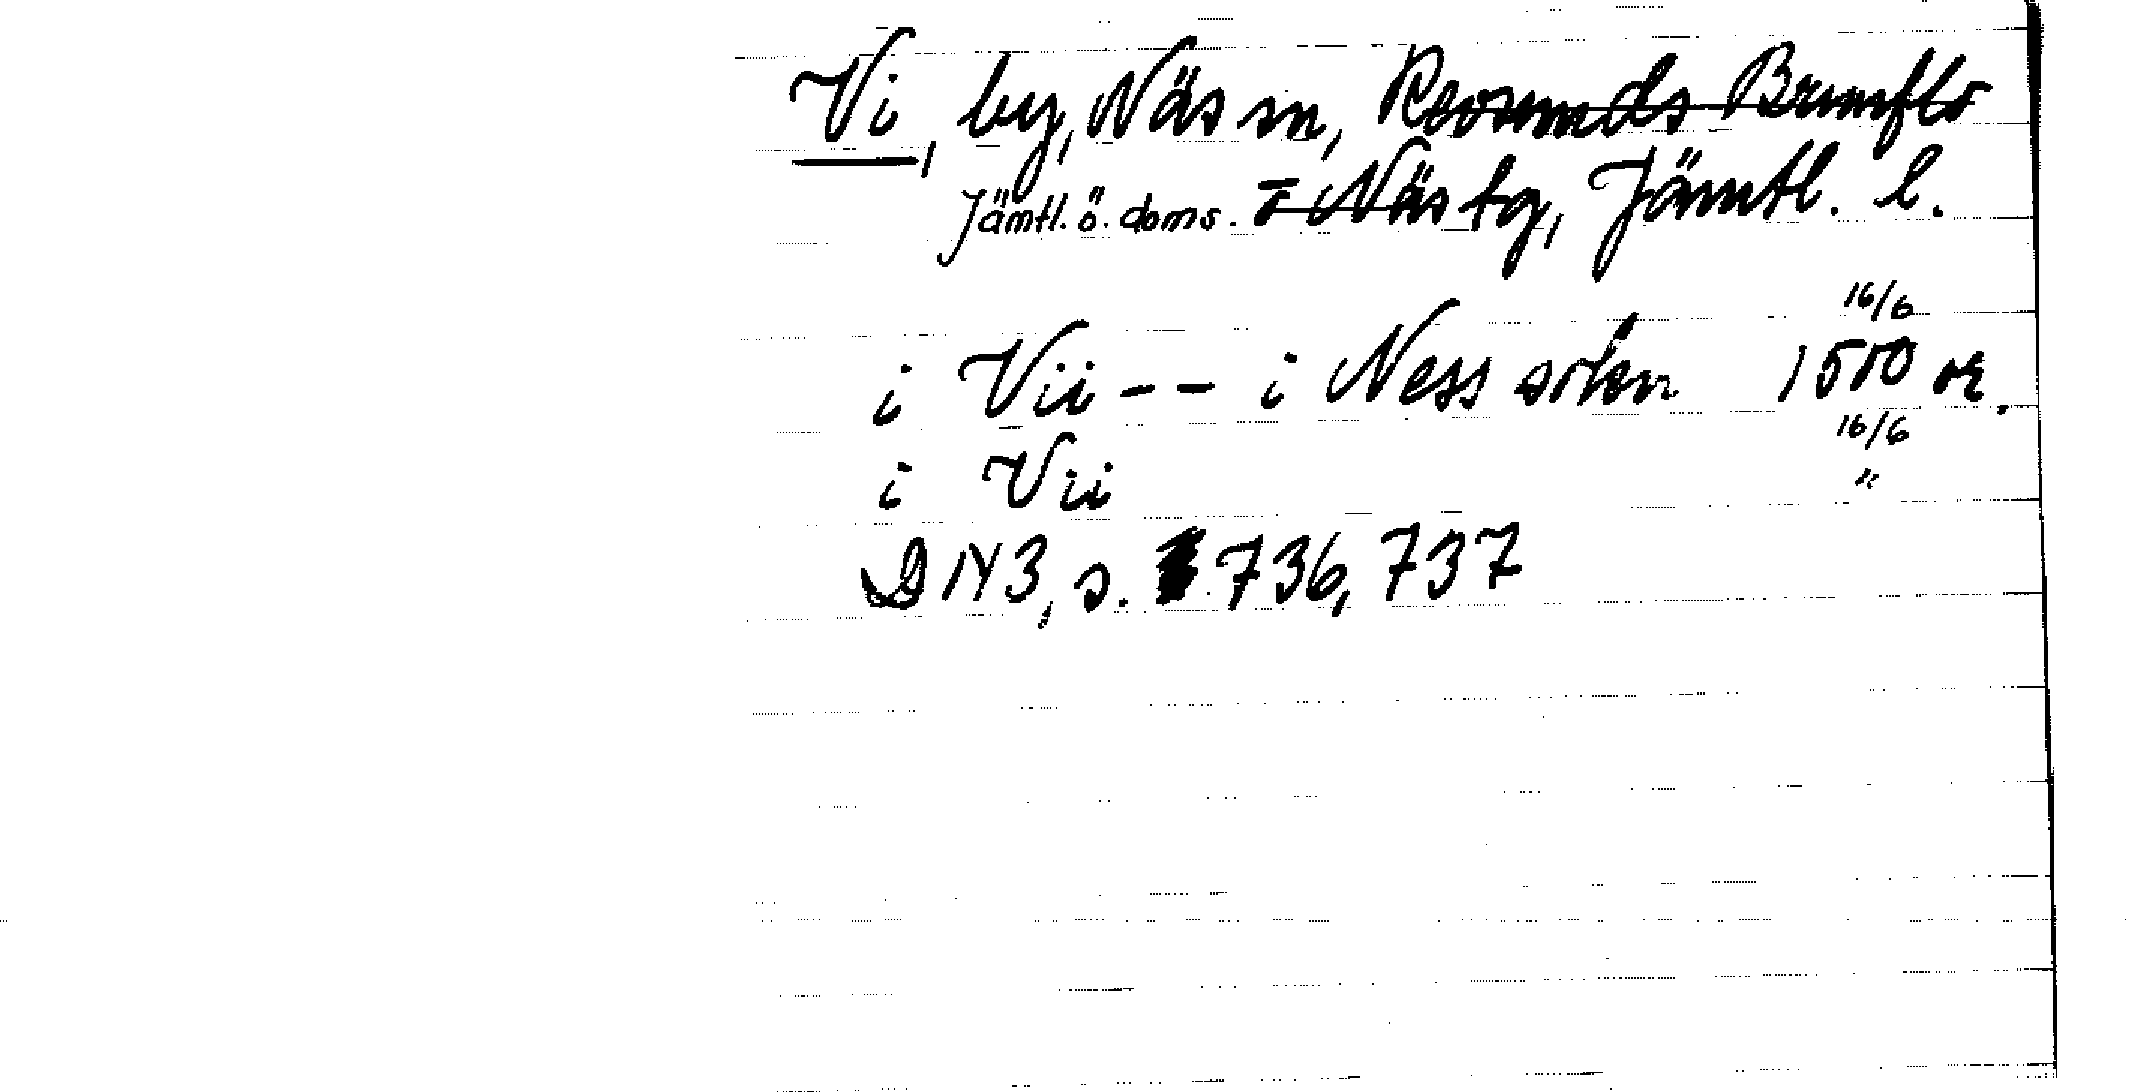 Vi, by, Näs sn, Revsunds Brunflo
Jämtl. ö. doms. o Näs tg, Jämtl. l.
16/6
i Vii -- i Ness sokn 1500 or.
16/6
i Vii "
D 143, s. 736, 737